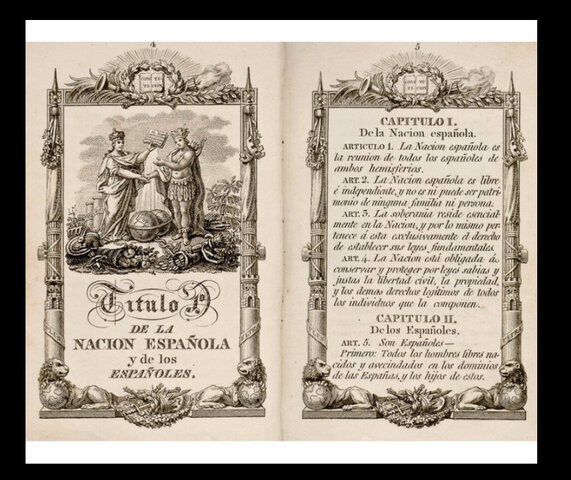 4
CONS TI
TU CION
Título P.º
DE LA
NACION ESPAÑOLA
y de los
ESPAÑOLES.
5
CONS TI
TU CION
CAPITULO I.
De la Nacion española.
ARTICULO 1. La Nacion española es
la reunion de todos los españoles de
ambos hemisferios.
ART. 2. La Nacion española es libre
é independiente, y no es ni puede ser patri-
monio de ninguna familia ni persona.
ART. 3. La soberania reside esencial-
mente en la Nacion, y por lo mismo per-
tenece á esta exclusivamente el derecho
de establecer sus leyes fundamentales.
ART. 4. La Nacion está obligada á
conservar y proteger por leyes sabias y
justas la libertad civil, la propiedad,
y los demas derechos legítimos de todos
los individuos que la componen.
CAPITULO II.
De los Españoles.
ART. 5. Son Españoles—
Primero: Todos los hombres libres na-
cidos y avecindados en los dominios
de las Españas, y los hijos de estos.